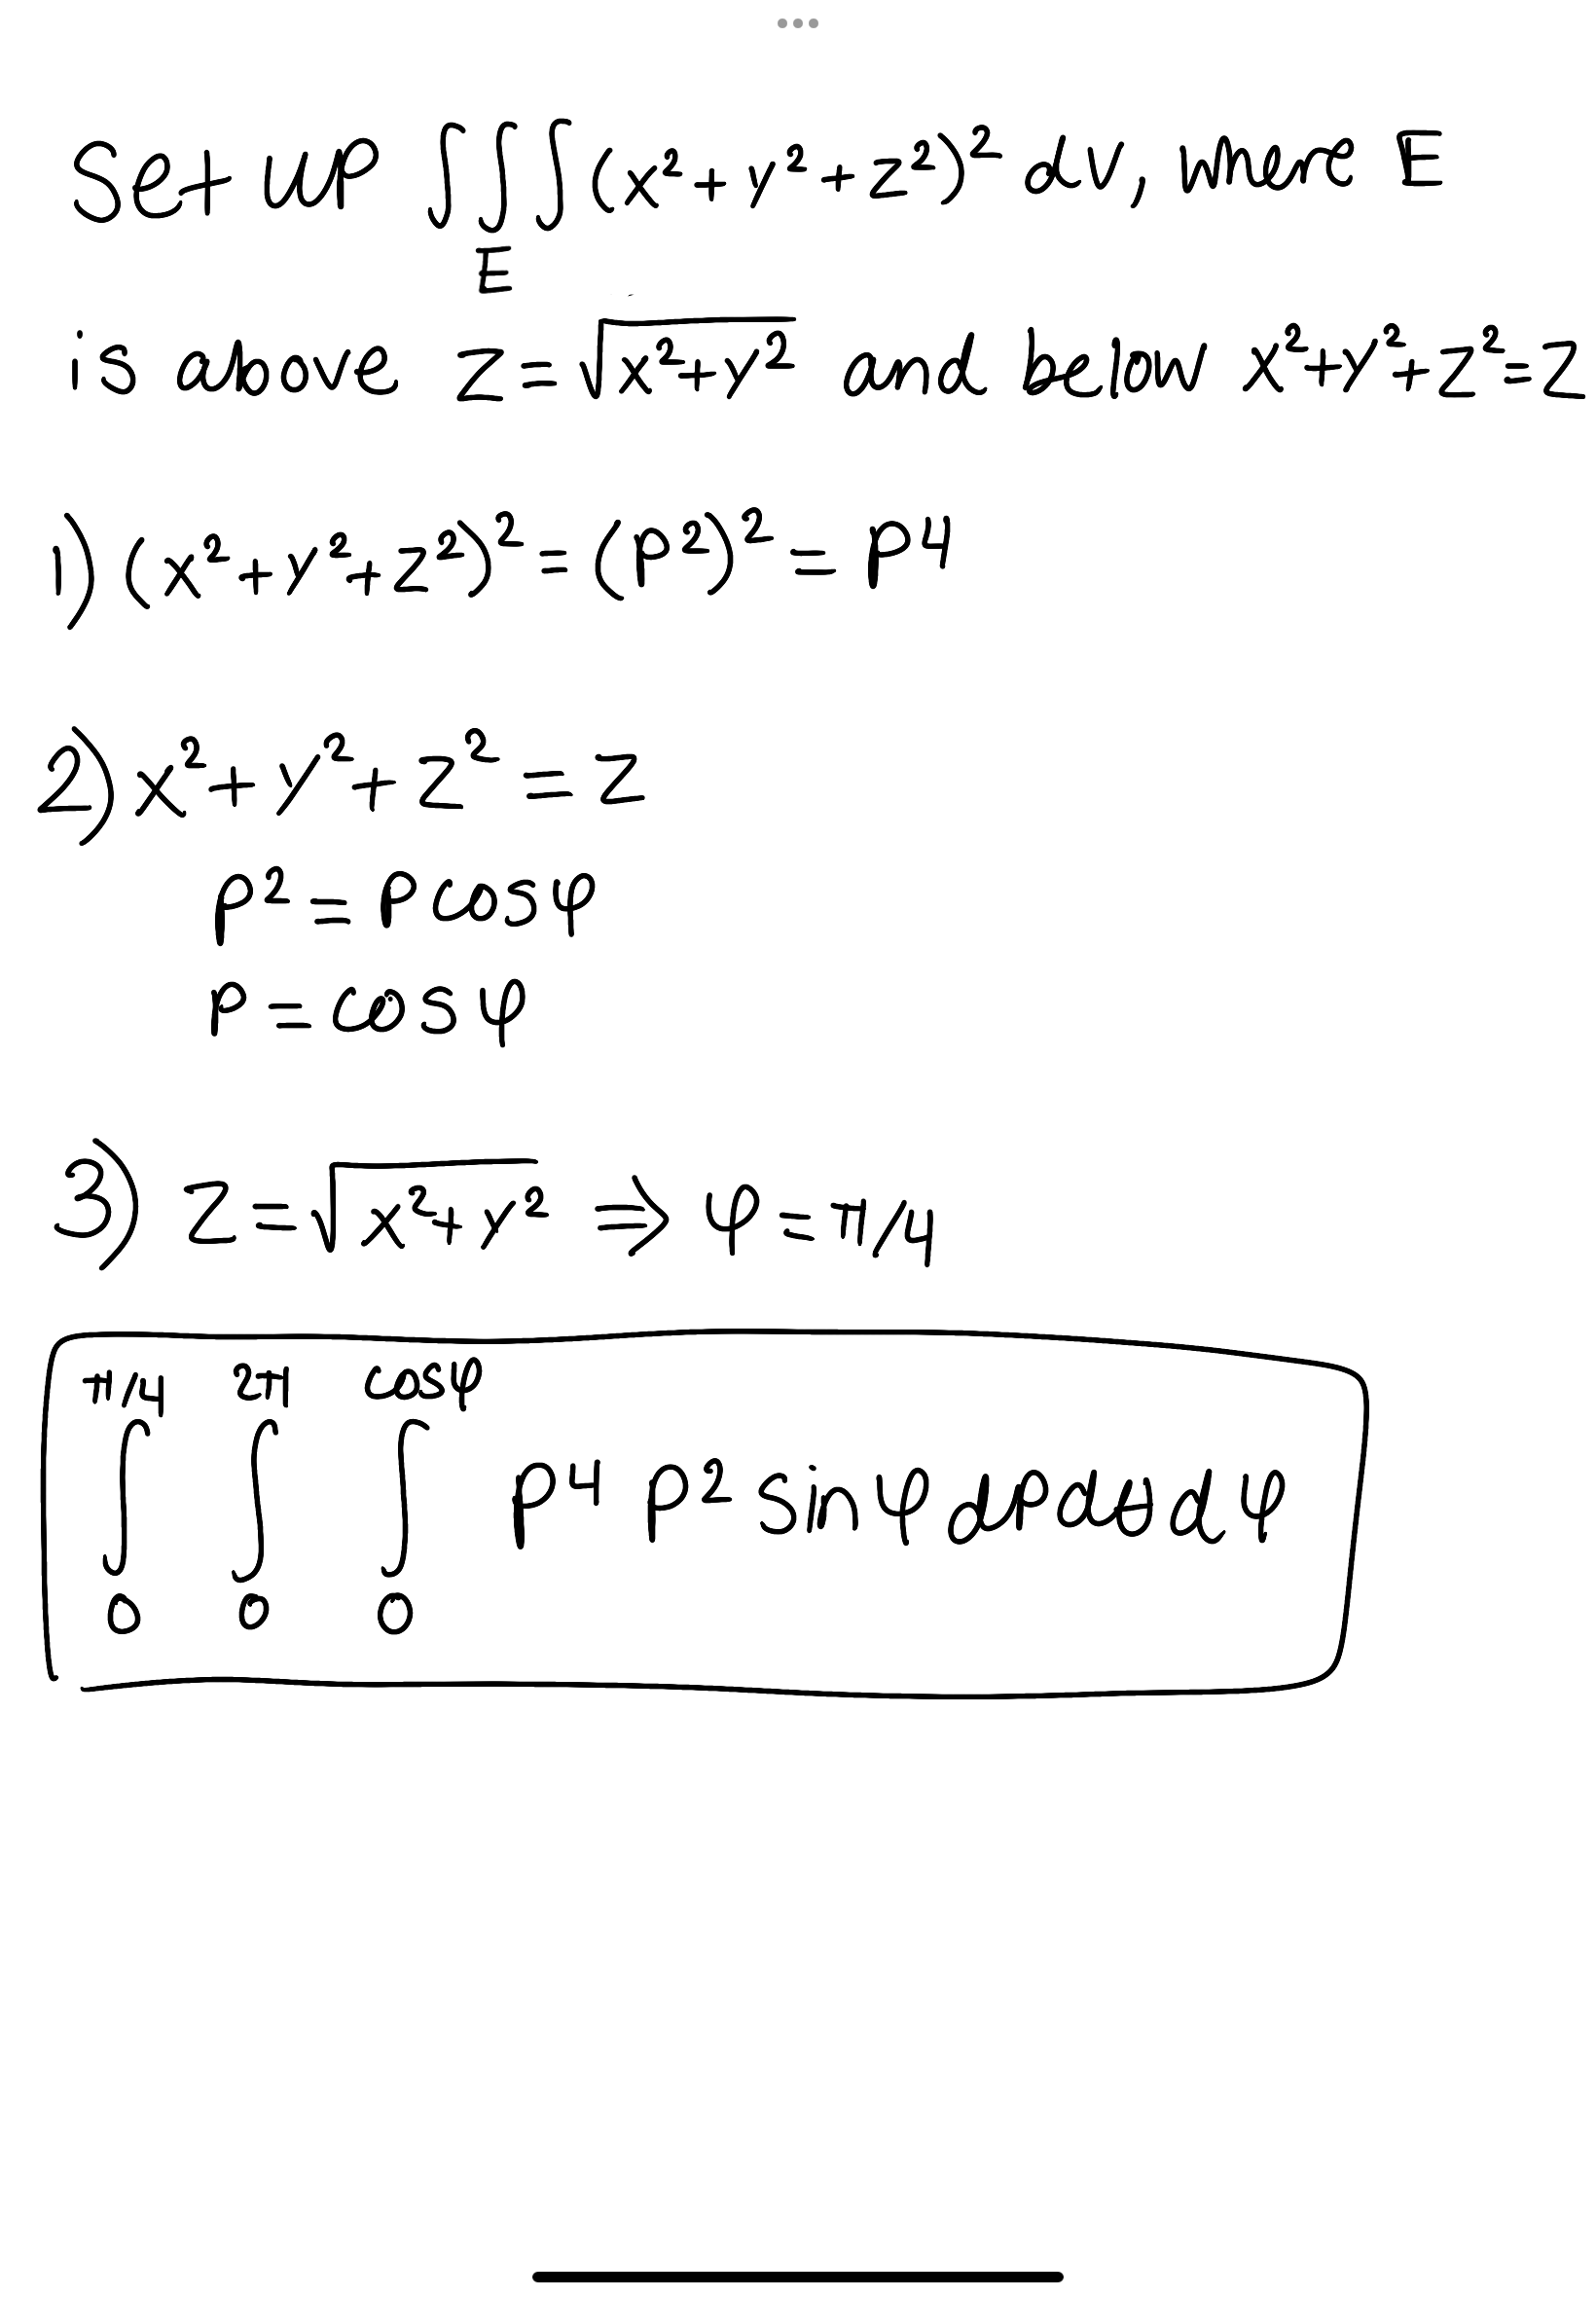 Set up ∫∫∫_E (x²+y²+z²)² dv, where E
is above z=√(x²+y²) and below x²+y²+z²=z
1) (x²+y²+z²)² = (ρ²)² = ρ⁴
2) x²+y²+z² = z
ρ² = ρcosφ
ρ = cosφ
3) z=√(x²+y²) ⇒ φ=π/4
∫₀^(π/4) ∫₀^(2π) ∫₀^(cosφ) ρ⁴ ρ² sinφ dρdθdφ